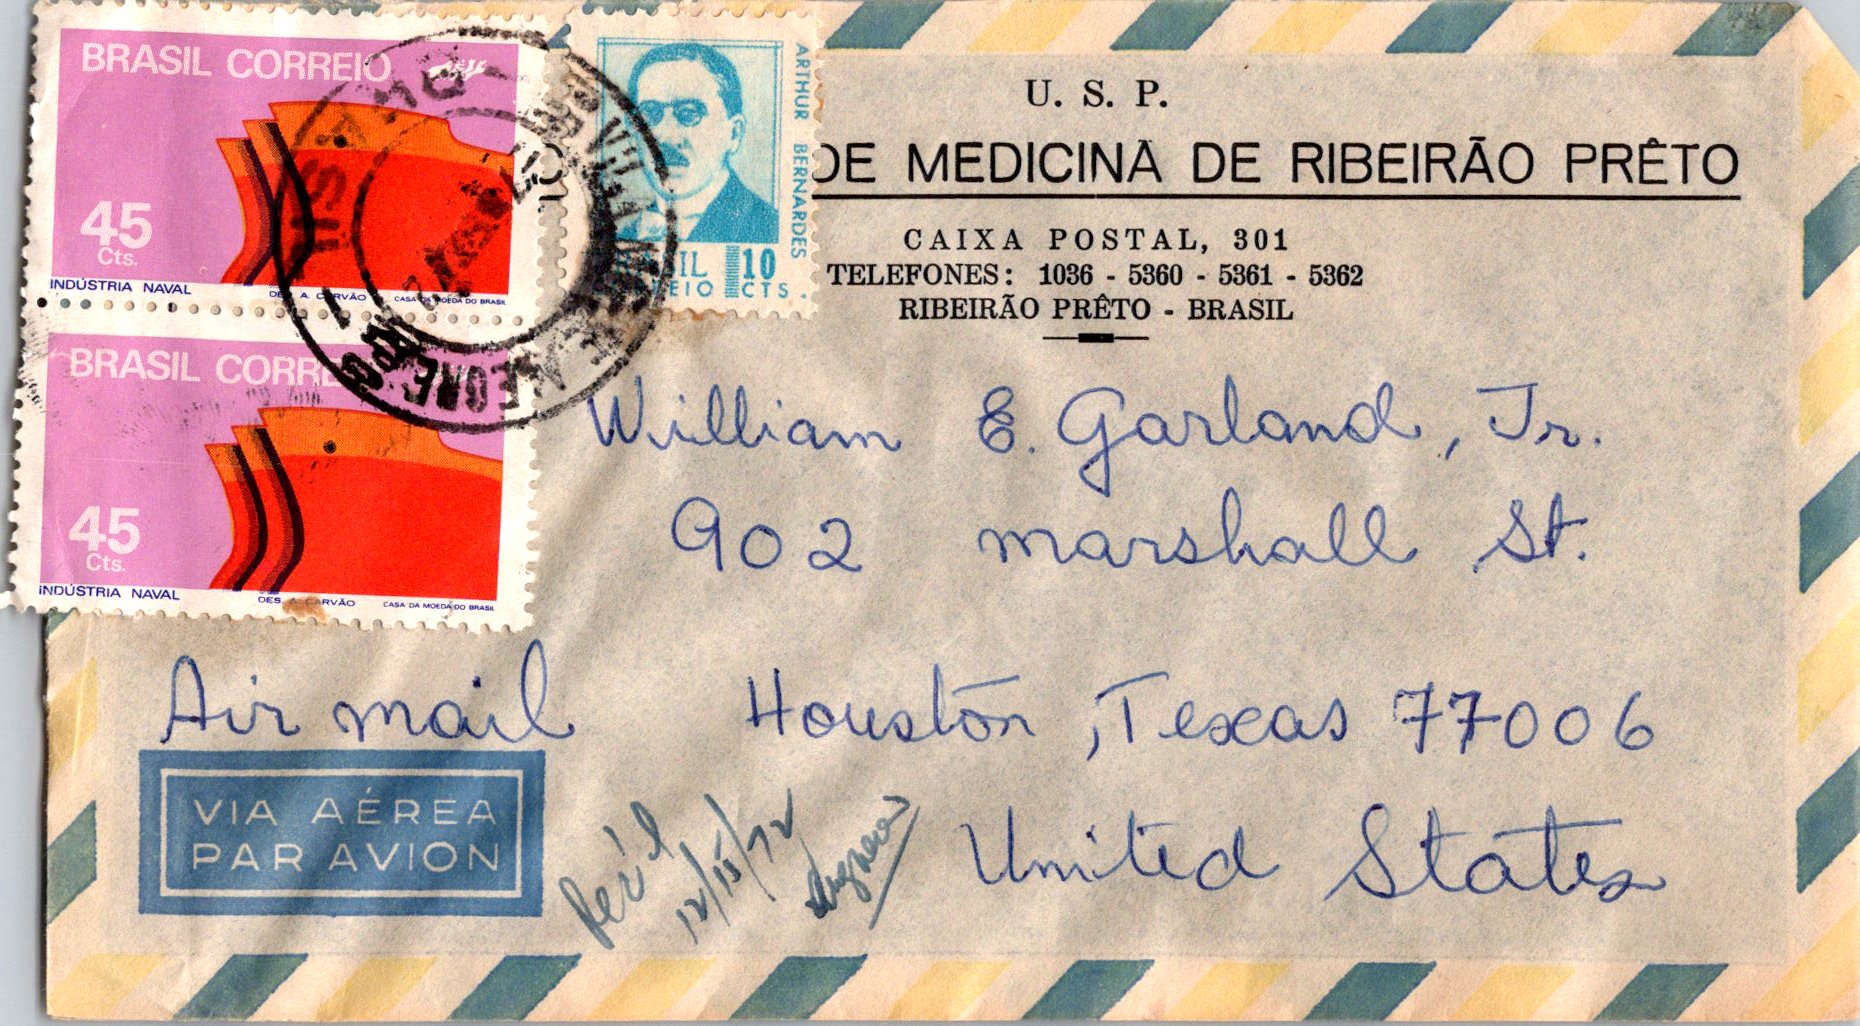 BRASIL CORREIO
45
Cts.
INDÚSTRIA NAVAL DES. A. CARVÃO CASA DA MOEDA DO BRASIL
BRASIL CORRE
45
Cts.
INDÚSTRIA NAVAL DES. A. CARVÃO CASA DA MOEDA DO BRASIL
ARTHUR BERNARDES
SIL 10
EIO CTS.
ALEGRE
U. S. P.
DE MEDICINA DE RIBEIRÃO PRÊTO
CAIXA POSTAL, 301
TELEFONES: 1036 - 5360 - 5361 - 5362
RIBEIRÃO PRÊTO - BRASIL
William E. Garland, Jr.
902 marshall St.
Air mail
Houston, Texas 77006
United States
VIA AÉREA
PAR AVION
Rec'd
12/15/72